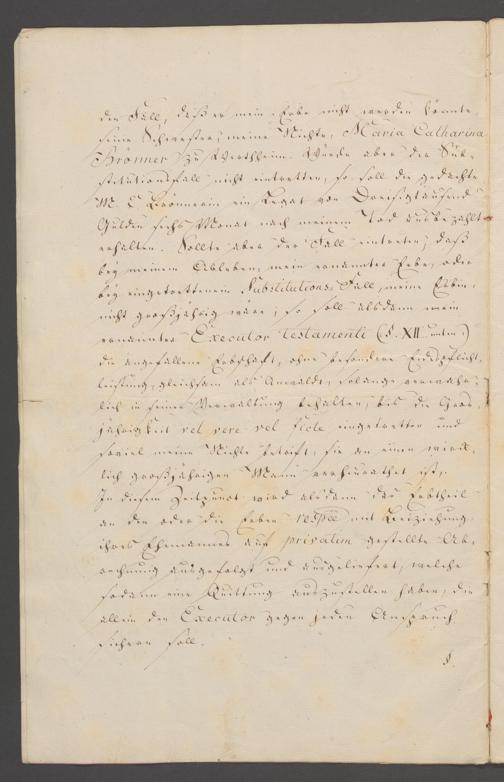 den Fall, daß er mein Erbe nicht werden könnte,
seine Schwester, meine Nichte, Maria Catharina
Brönner zu Wertheim. Würde aber der Sub-
stitutionsfall nicht eintretten, so soll die gedachte
M. C. Brönnerin ein Legat von Dreisigtausend
Gulden sechs Monat nach meinem Tod ausbezahlt
erhalten. Sollte aber der Fall eintreten, daß
bey meinem Ableben, mein ernannter Erbe, oder
bey eingetrettenem Substitutions Fall, meine Erbin,
nicht großjährig wäre; so soll alsdann mein
ernannter Executor testamenti (§. XII unten)
die angefallene Erbschaft, ohne besondere Eidespflicht,
leistung, gleichsam als Anwaldt, solange verwahr-
lich in seiner Verwaltung behalten, bis die Gros-
jährigkeit vel vere vel ficte eingetretten und
soviel meine Nichte betrift, sie an einen wirk-
lich großjährigen Mann verheurathet ist.
In diesem Zeitpunct wird alsdann das Erbtheil
an den oder die Erben respee mit Beiziehung
ihres Ehemannes auf privatim gestellte Ab-
rechnung ausgefolgt und ausgeliefert, welche
sodann eine Quittung auszustellen haben, die
allein den Executor gegen jeden Anspruch
sichern soll.
§.